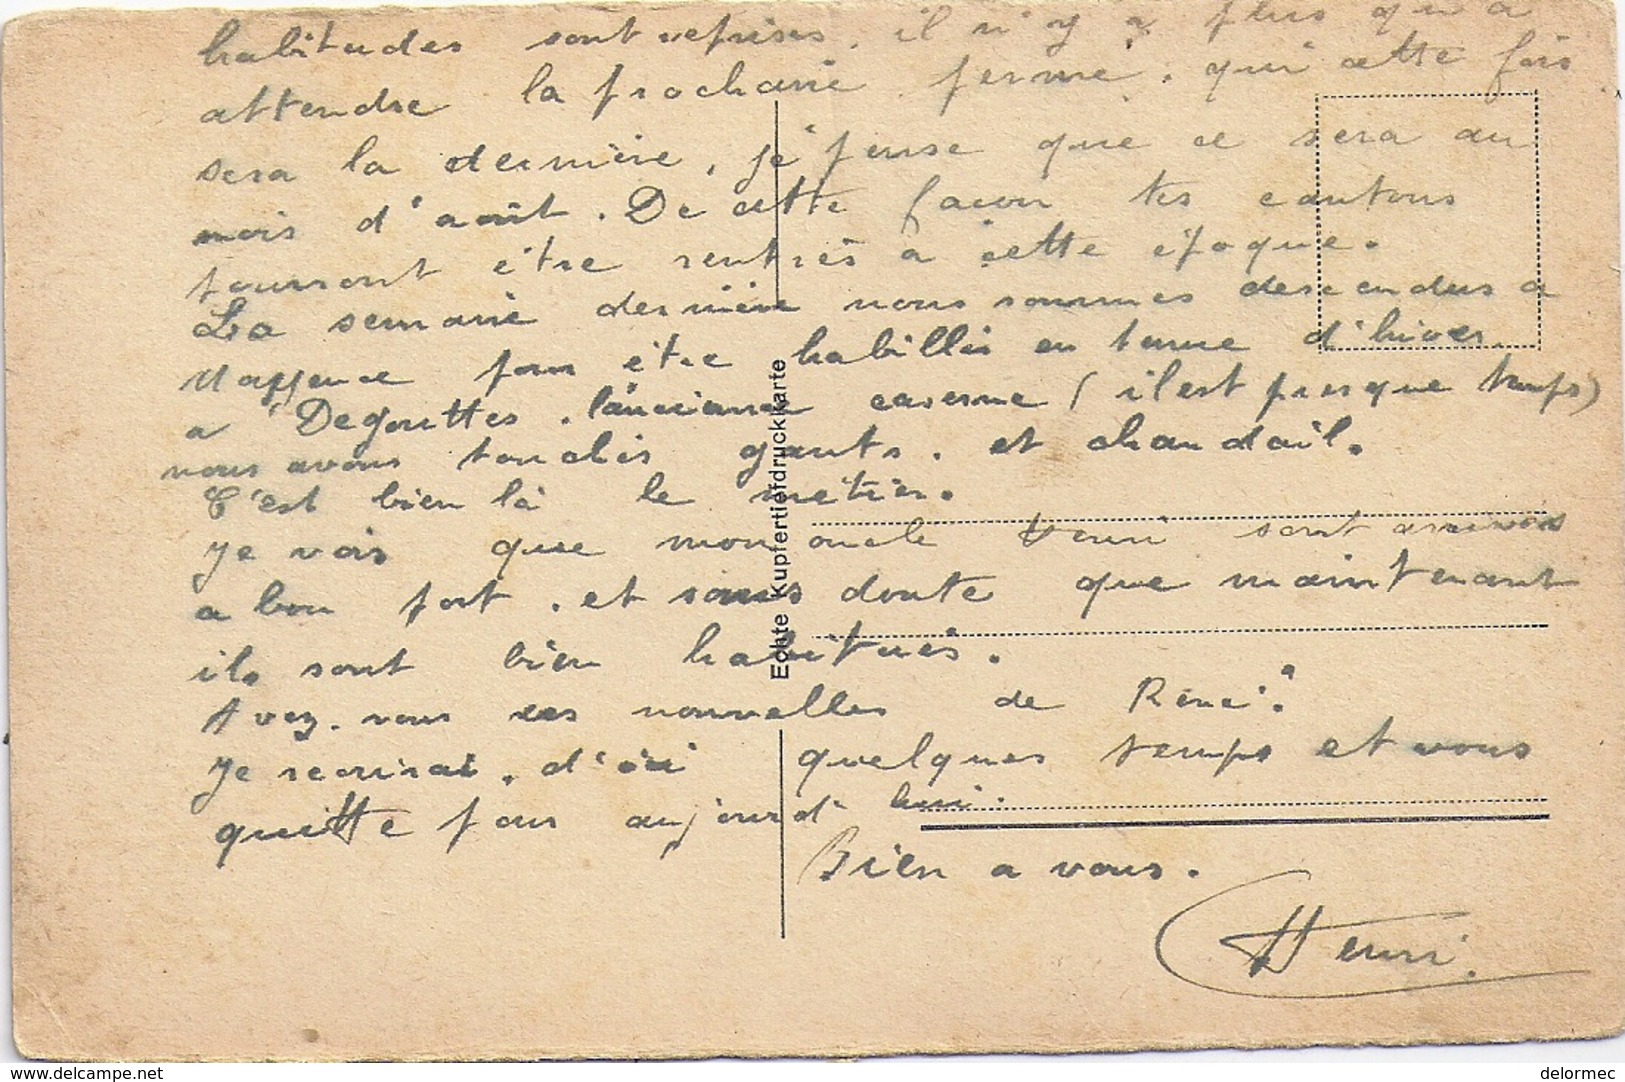 habitudes sont reprises, il n'y a plus qu'a
attendre la prochaine ferme, qui cette fois
sera la dernière, je pense que ce sera au
mois d'août. De cette façon tes cantons
pourront être rentrés a cette époque.
La semaine dernière nous sommes descendus a
pour être habillés en tenue d'hiver.
a Degouttes, l'ancienne caserne (il est presque temps)
nous avons touchés gants, et chandail.
C'est bien là le métier.
Je vois que mon oncle sont arrivés
a bon port, et sans doute que maintenant
ils sont bien habitués.
Avez-vous des nouvelles de René?
Je recrirai, d'ici quelques temps et vous
quitte pour aujourd'hui.
Bien a vous.
Henri.
Echte Kupfertiefdruckkarte
www.delcampe.net
delormec